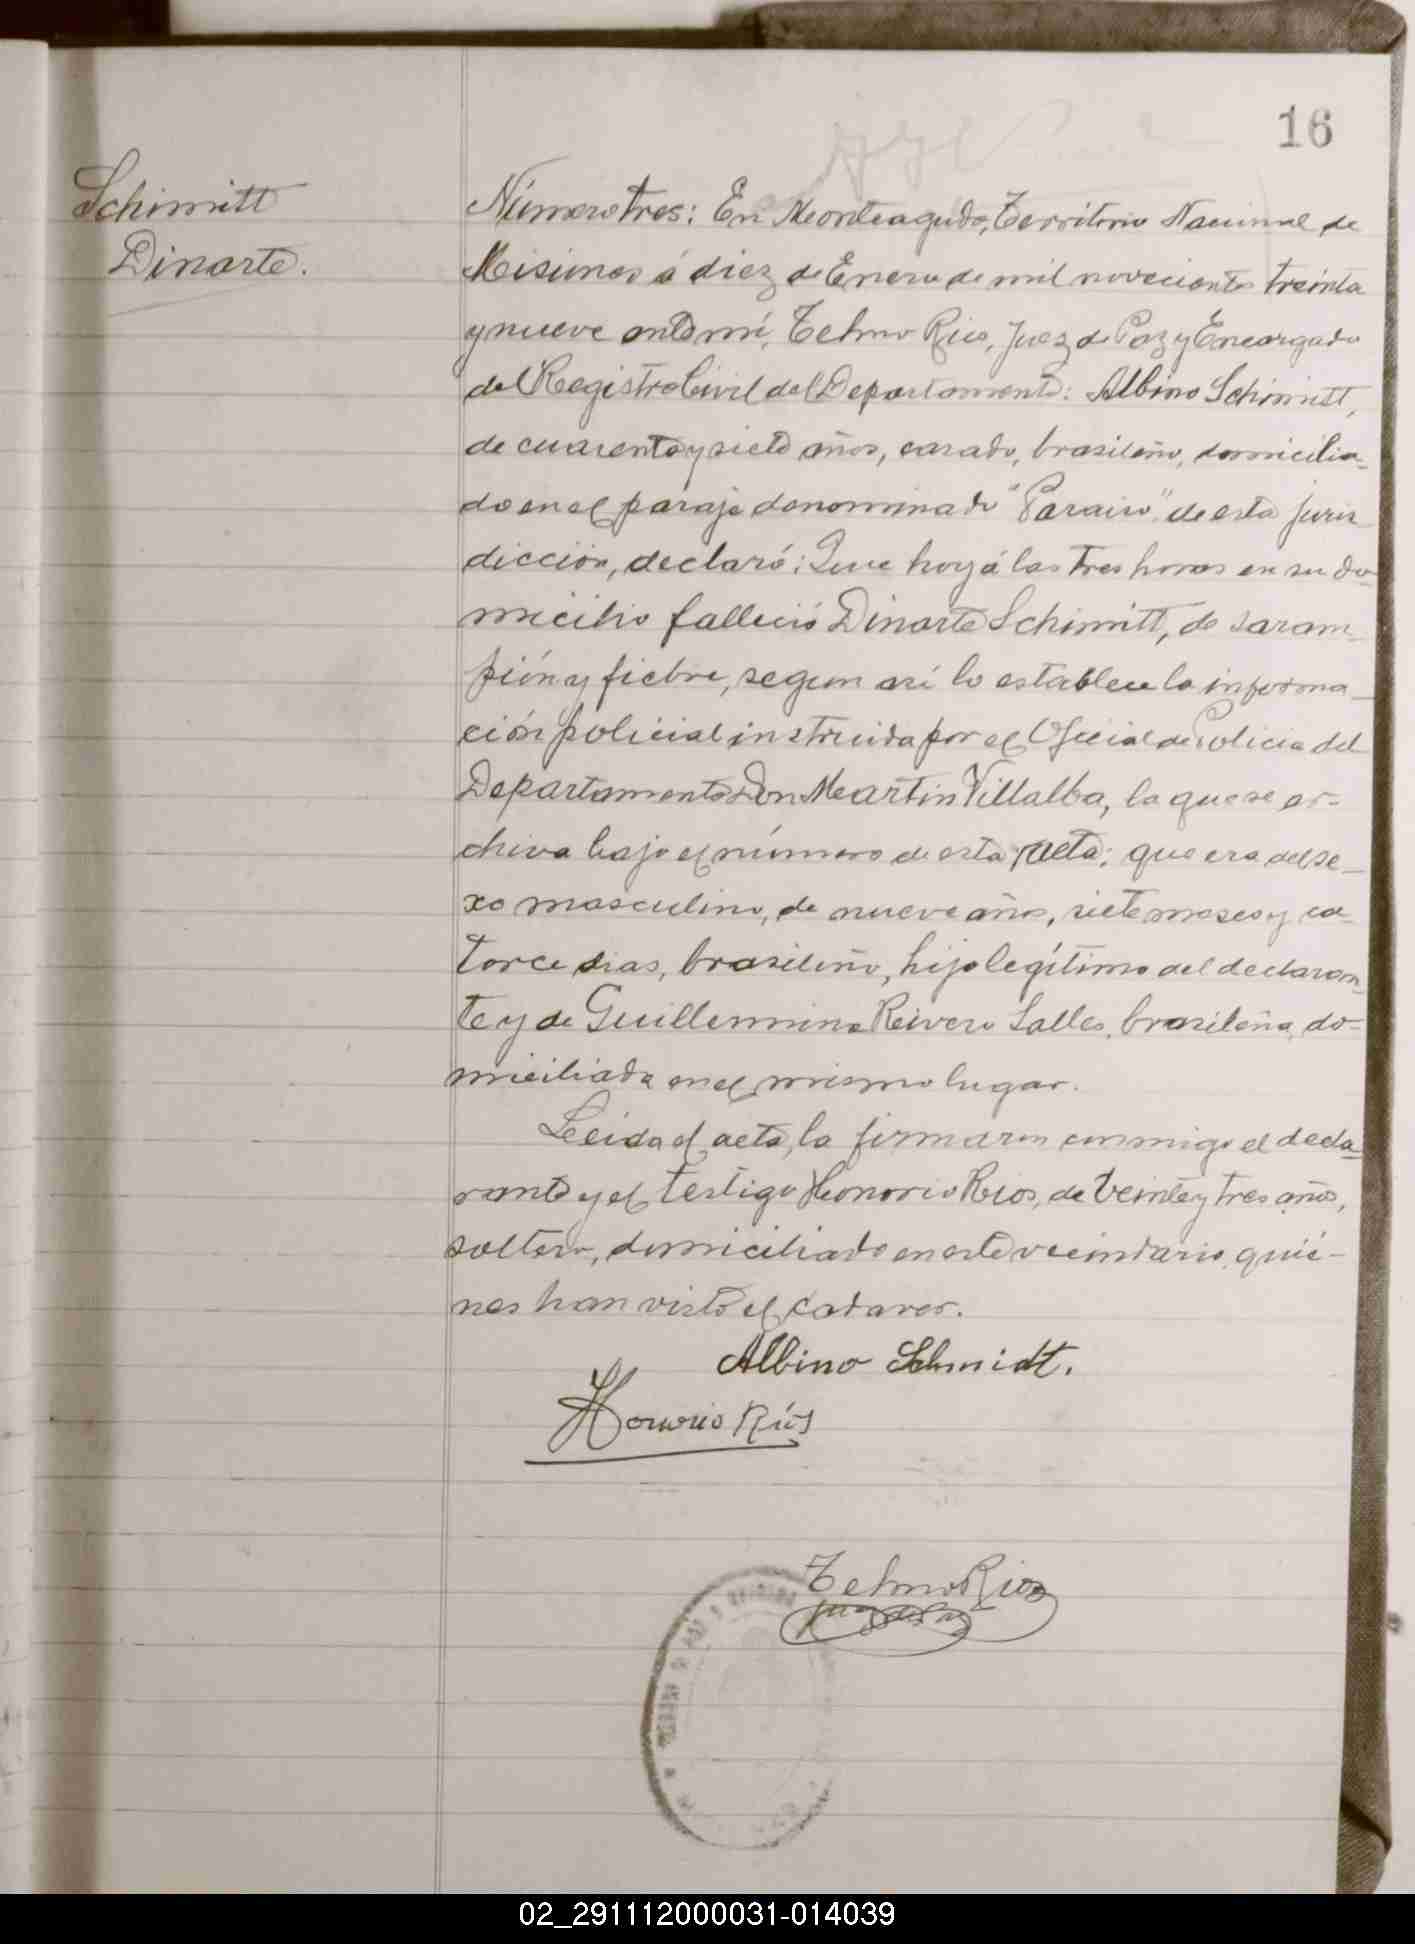 16
Schimitt
Dinarte.
Número tres: En Monteagudo, Territorio Nacional de
Misiones á diez de Enero de mil novecientos treinta
y nueve ante mí, Telmo Rios, Juez de Paz y Encargado
del Registro Civil del Departamento: Albino Schimitt,
de cuarenta y siete años, casado, brasileño, domicilia-
do en el paraje denominado "Paraiso" de esta juris
dicción, declaró: Que hoy á las tres horas en su do-
micilio falleció Dinarte Schimitt, de saram-
pión y fiebre, segun así lo establece la informa-
ción policial instruida por el Oficial de Policia del
Departamento Don Martin Villalba, la que se ar-
chiva bajo el número de esta acta; que era del se-
xo masculino, de nueve años, siete meses y ca-
torce dias, brasileño, hijo legítimo del declaran-
te y de Guillermina Rivero Salles, brasileña, do-
miciliada en el mismo lugar.
Leida el acta, la firmaron conmigo el decla-
rante y el testigo Honorio Rios, de veinte y tres años,
soltero, domiciliado en este vecindario, quié-
nes han visto el cadaver.
Albino Schmidt.
Honorio Ríos
Telmo Rios
Juez de Paz
02_291112000031-014039